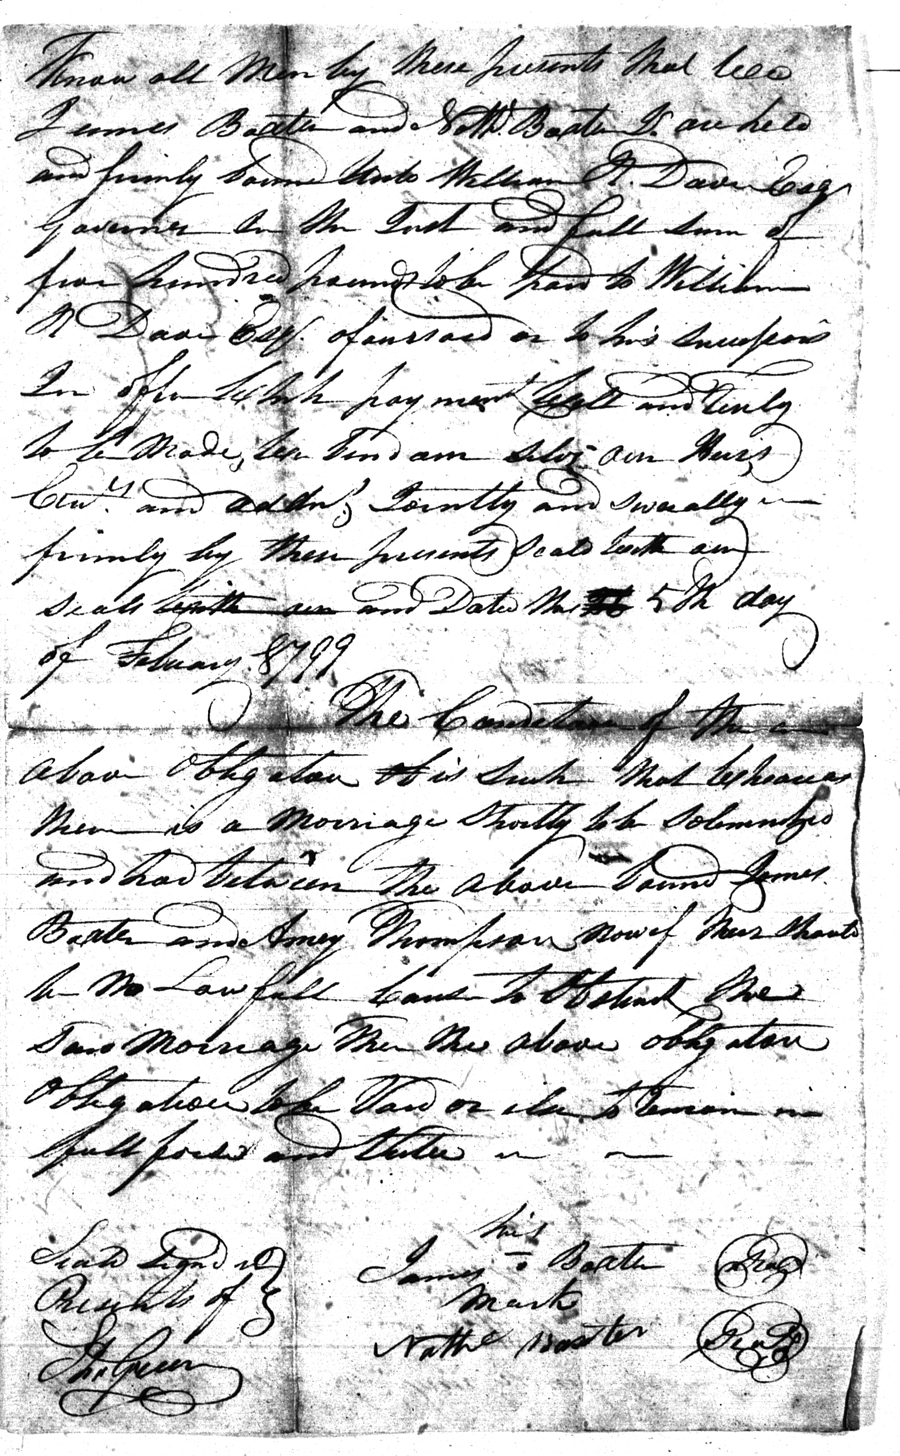 Know all Men by these presents that wee
James Baxter and Nathl Baxter Jr are held
and firmly bound unto William R. Davie Esqr
Governer in the Just and full sum of
five hundred pounds to be paid to William
R Davie Esqr. aforesaid or to his successors
In office Which payment Well and truly
to be Made, we bind our selvs our Heirs
and addmrs Jointly and severally
firmly by these presents Seald with our
seals with our and Dated the 5th day
of Febuary 1799
The Condition of the
above Obligation is such that whereas
there is a Marriage Shortly to be Solemnized
and had between the above bound James
Baxter and Amey Thompson now if there should
be No Lawfull Cause to Obstruct the
said Marriage then the above obligation
Obligation to be Void or else to remain in
full force and Virtue
Seald Signd
Presents of
Green
his
James Baxter
Mark
Nathl Baxter
Seal
Seal